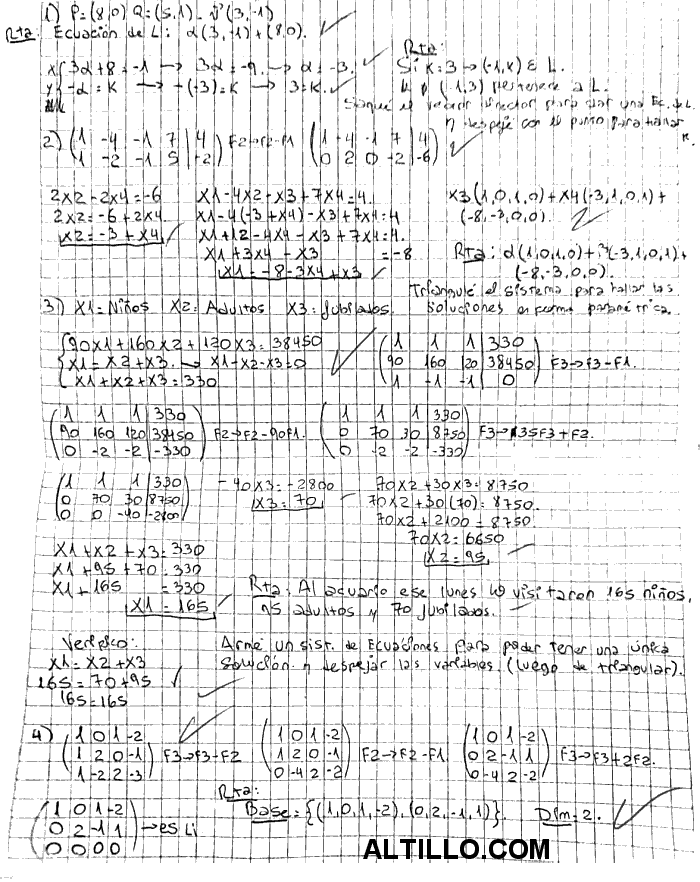 1) P=(8,0) Q=(5,1) - v(3,-1)
Rta: Ecuación de L: α(3,-1)+(8,0).
x{3α+8=-1 → 3α=-9 → α=-3.
y{-α=K → -(-3)=K → 3=K.
Rta:
Si K=3 → (-1,K) ∈ L.
(-1,3) Pertenece a L.
Saqué el vector director para dar una Ec. de L
y despejé con el punto para hallar K.
2) (1 -4 -1 7 | 4) F2→F2-F1 (1 -4 -1 7 | 4)
(1 -2 -1 5 | -2) (0 2 0 -2 | -6)
2x2-2x4=-6
2x2=-6+2x4
x2=-3+x4
x1-4x2-x3+7x4=4.
x1-4(-3+x4)-x3+7x4=4
x1+12-4x4-x3+7x4=4.
x1+3x4-x3=-8
x1=-8-3x4+x3
x3(1,0,1,0)+x4(-3,1,0,1)+
(-8,-3,0,0).
Rta: α(1,0,1,0)+(-3,1,0,1)+
(-8,-3,0,0).
Triangulé el sistema para hallar las
soluciones en forma paramétrica.
3) X1=Niños X2=Adultos X3=Jubilados.
{90x1+160x2+120x3=38450
{x1=x2+x3 → x1-x2-x3=0
{x1+x2+x3=330
(1 1 1 | 330)
(90 160 120 | 38450) F3→F3-F1.
(1 -1 -1 | 0)
(1 1 1 | 330) (1 1 1 | 330)
(90 160 120 | 38450) F2→F2-90F1. (0 70 30 | 8750) F3→35F3+F2.
(0 -2 -2 | -330) (0 -2 -2 | -330)
(1 1 1 | 330)
(0 70 30 | 8750)
(0 0 -40 | -2800)
-40x3=-2800
x3=70
70x2+30x3=8750
70x2+30(70)=8750.
70x2+2100=8750.
70x2=6650
x2=95
x1+x2+x3=330
x1+95+70=330
x1+165=330
x1=165
Rta: Al acuario ese lunes lo visitaron 165 niños,
95 adultos y 70 jubilados.
Verifico:
x1=x2+x3
165=70+95
165=165
Armé un sist. de Ecuaciones para poder tener una única
solución y despejar las variables (luego de triangular).
4) (1 0 1 -2) (1 0 1 -2) (1 0 1 -2)
(1 2 0 -1) F3→F3-F2 (1 2 0 -1) F2→F2-F1. (0 2 -1 1) F3→F3+2F2.
(1 -2 2 -3) (0 -4 2 -2) (0 -4 2 -2)
(1 0 1 -2)
(0 2 -1 1) → es Li
(0 0 0 0)
Rta:
Base={(1,0,1,-2),(0,2,-1,1)}. Dim=2.
ALTILLO.COM